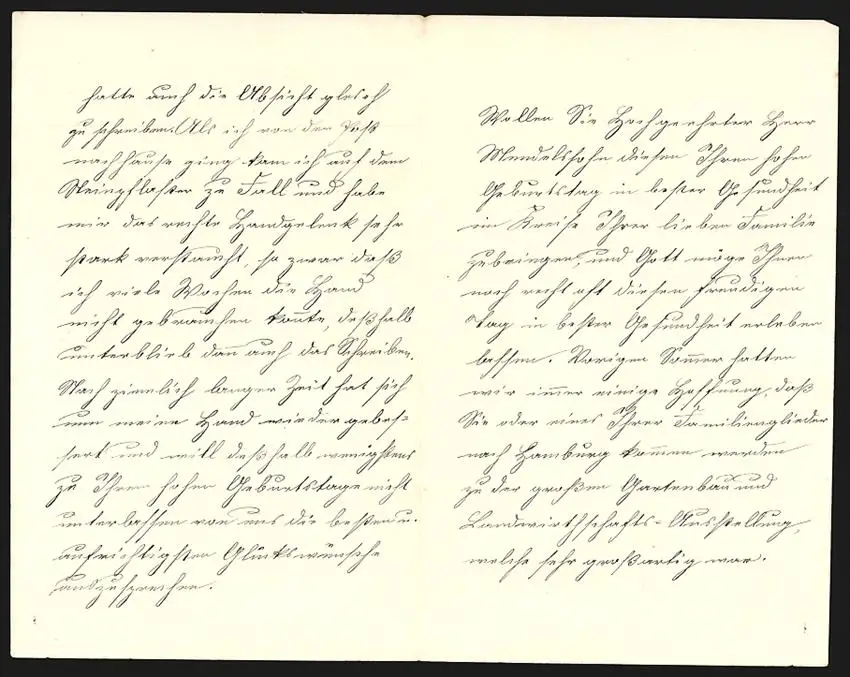 hatte auch die Absicht gleich
zu schreiben. Als ich von der Post
nach hause ging kam ich auf dem
Steinpflaster zu Fall und habe
mir das rechte Handgelenk sehr
stark verstaucht, so zwar daß
ich viele Wochen die Hand
nicht gebrauchen konnte, deßhalb
unterblieb dann auch das Schreiben.
Nach ziemlich langer Zeit hat sich
nun meine Hand wieder gebes-
sert und will deßhalb wenigstens
zu Ihrem hohen Geburtstage nicht
unterlassen von uns die besten u.
aufrichtigsten Glückswünsche
auszusprechen.
Wollen Sie Hochgeehrter Herr
Mendelssohn diesen Ihren hohen
Geburtstag in bester Gesundheit
im Kreise Ihrer lieben Familie
zubringen, und Gott möge Ihnen
noch recht oft diesen freudigen
Tag in bester Gesundheit erleben
lassen. Vorigen Som̅er hatten
wir im̅er einige Hoffnung, daß
Sie oder eines Ihrer Familienglieder
nach Hamburg kom̅en werden
zu der großen Gartenbau und
Landwirthschafts-Ausstellung,
welche sehr großartig war.